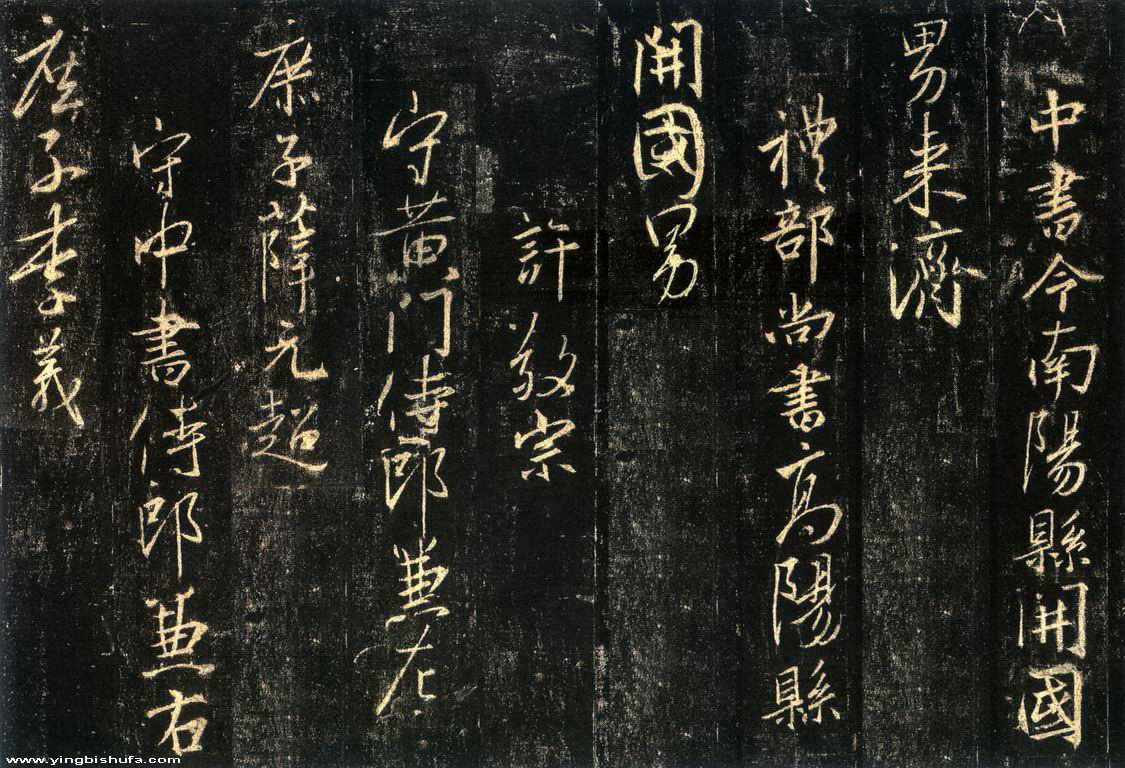 中書令南陽縣開國
男来濟
禮部尚書高陽縣
開國男
許敬宗
守黄门侍郎兼左
庶子薛元超
守中書侍郎兼右
庶子李義
www.yingbishufa.com